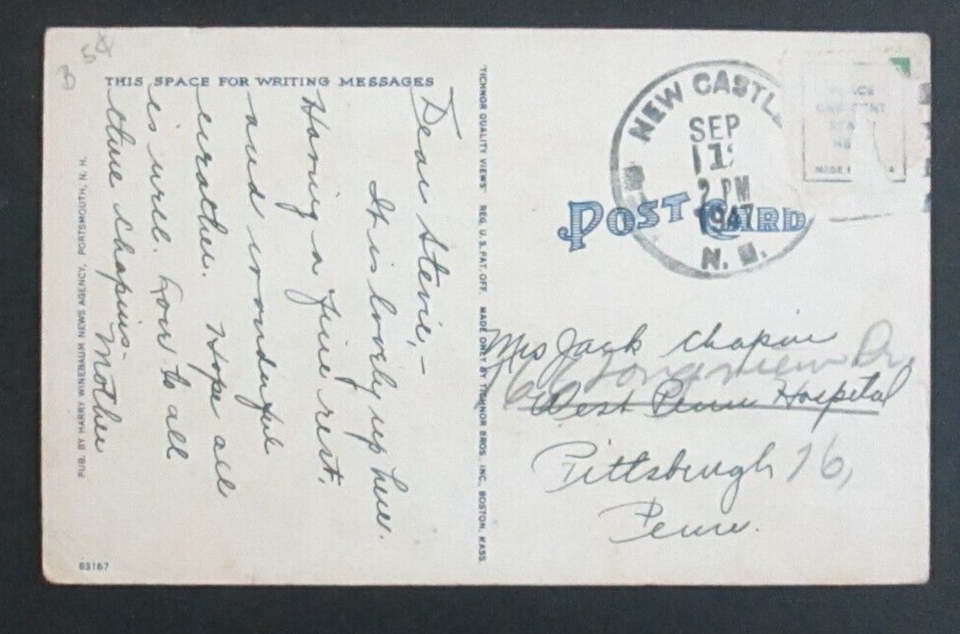 B 5¢
THIS SPACE FOR WRITING MESSAGES
Dear Stevie,—
It is lovely up here.
Having a fine rest,
and wonderful
weather. Hope all
is well. Love to all
three Chapins-
Mother
PUB. BY HARRY WINEBAUM NEWS AGENCY, PORTSMOUTH, N. H.
63167
"TICHNOR QUALITY VIEWS" REG. U. S. PAT. OFF. MADE ONLY BY TICHNOR BROS., INC., BOSTON, MASS.
NEW CASTLE
SEP
2 PM
1947
N. H.
PLACE
ONE CENT
STAMP
HERE
POST CARD
Mrs Jack Chapin
Longview Dr
West Penn Hospital
Pittsburgh 16,
Penn.